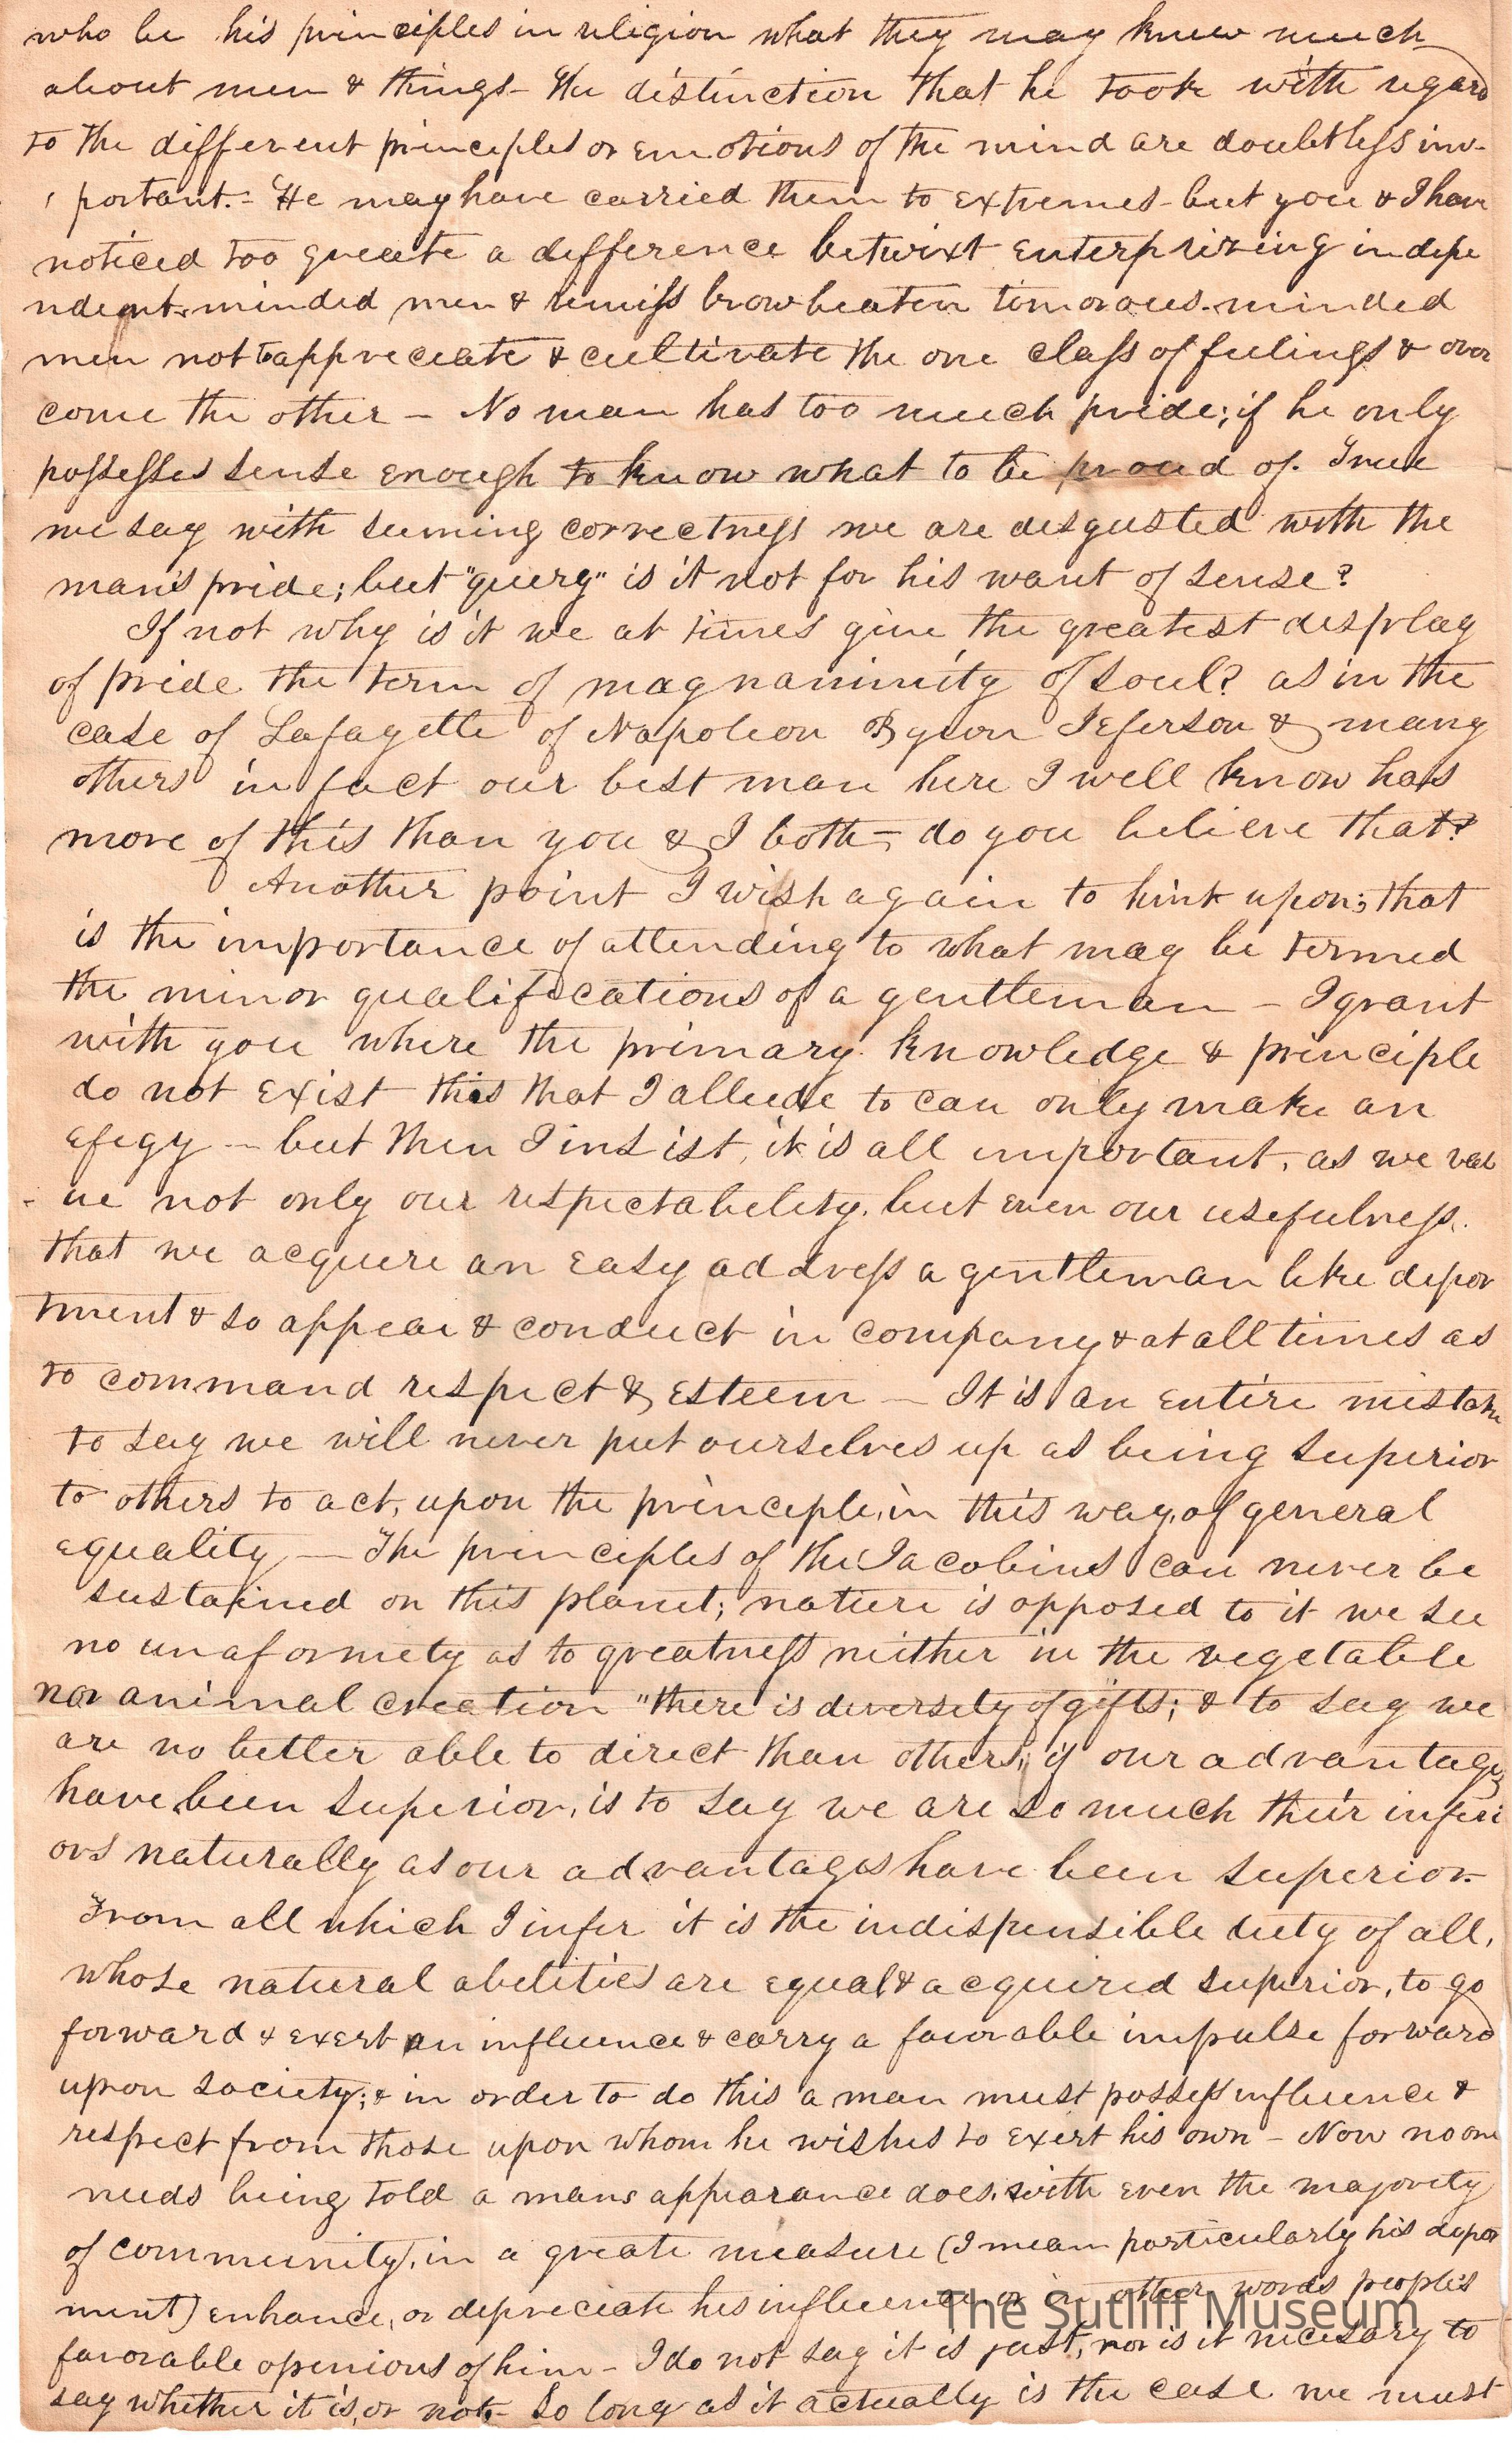 who be his principles in religion what they may knew much
about men & things - the distinction that he took with regard
to the different principles or emotions of the mind are doubtless im-
portant.- He may have carried them to extremes - but you & I have
noticed too greate a difference betwixt enterprizing indepe
ndent minded men & remiss browbeaten timorous-minded
men not to appreceate & cultivate the one class of feelings & over
come the other - No man has too much pride; if he only
possesses sense enough to know what to be proud of. True
we say with seeming correctness we are desgusted with the
man's pride; but "query" is it not for his want of sense?
If not why is it we at times give the greatest desplay
of pride the term of magnanimity of soul? as in the
case of Lafayette of Napoleon Byron Jeferson & many
others in fact our best man here I well know has
more of this than you & I both - do you believe that?
Another point I wish again to hint upon; that
is the importance of attending to what may be termed
the minor qualifications of a gentleman - I grant
with you where the primary knowledge & principle
do not exist this that I allude to can only make an
efegy - but then I insist, it is all important, as we val
- ue not only our respectability, but even our usefulness.
that we acquere an easy address a gentleman like depor
tment & so appear & conduct in company & at all times as
to command respect & esteem - It is an entire mistake
to say we will never put ourselves up as being superior
to others to act, upon the principle, in this way, of general
equality - The principles of the Jacobins can never be
sustained on this planet; nature is opposed to it we see
no unaformety as to greatness neither in the vegetable
nor animal creation "there is deversety of gifts; & to say we
are no better able to direct than others; if our advantages
have been superior, is to say we are so much their inferi
ors naturally as our advantages have been superior-
From all which I infer it is the indispensible duty of all,
whose natural abelities are equal & acquired superior, to go
forward & exert an influence & carry a favorable impulse forward
upon society; & in order to do this a man must possess influence &
respect from those upon whom he wishes to exert his own - Now no one
needs being told a mans appearance does, with even the majority
of community, in a greate measure (I mean particularly his depor
ment) enhance, or depreciate his influence or in other words people's
favorable openions of him - I do not say it is just, nor is it necesary to
say whether it is, or not - So long as it actually is the case we must
The Sutliff Museum